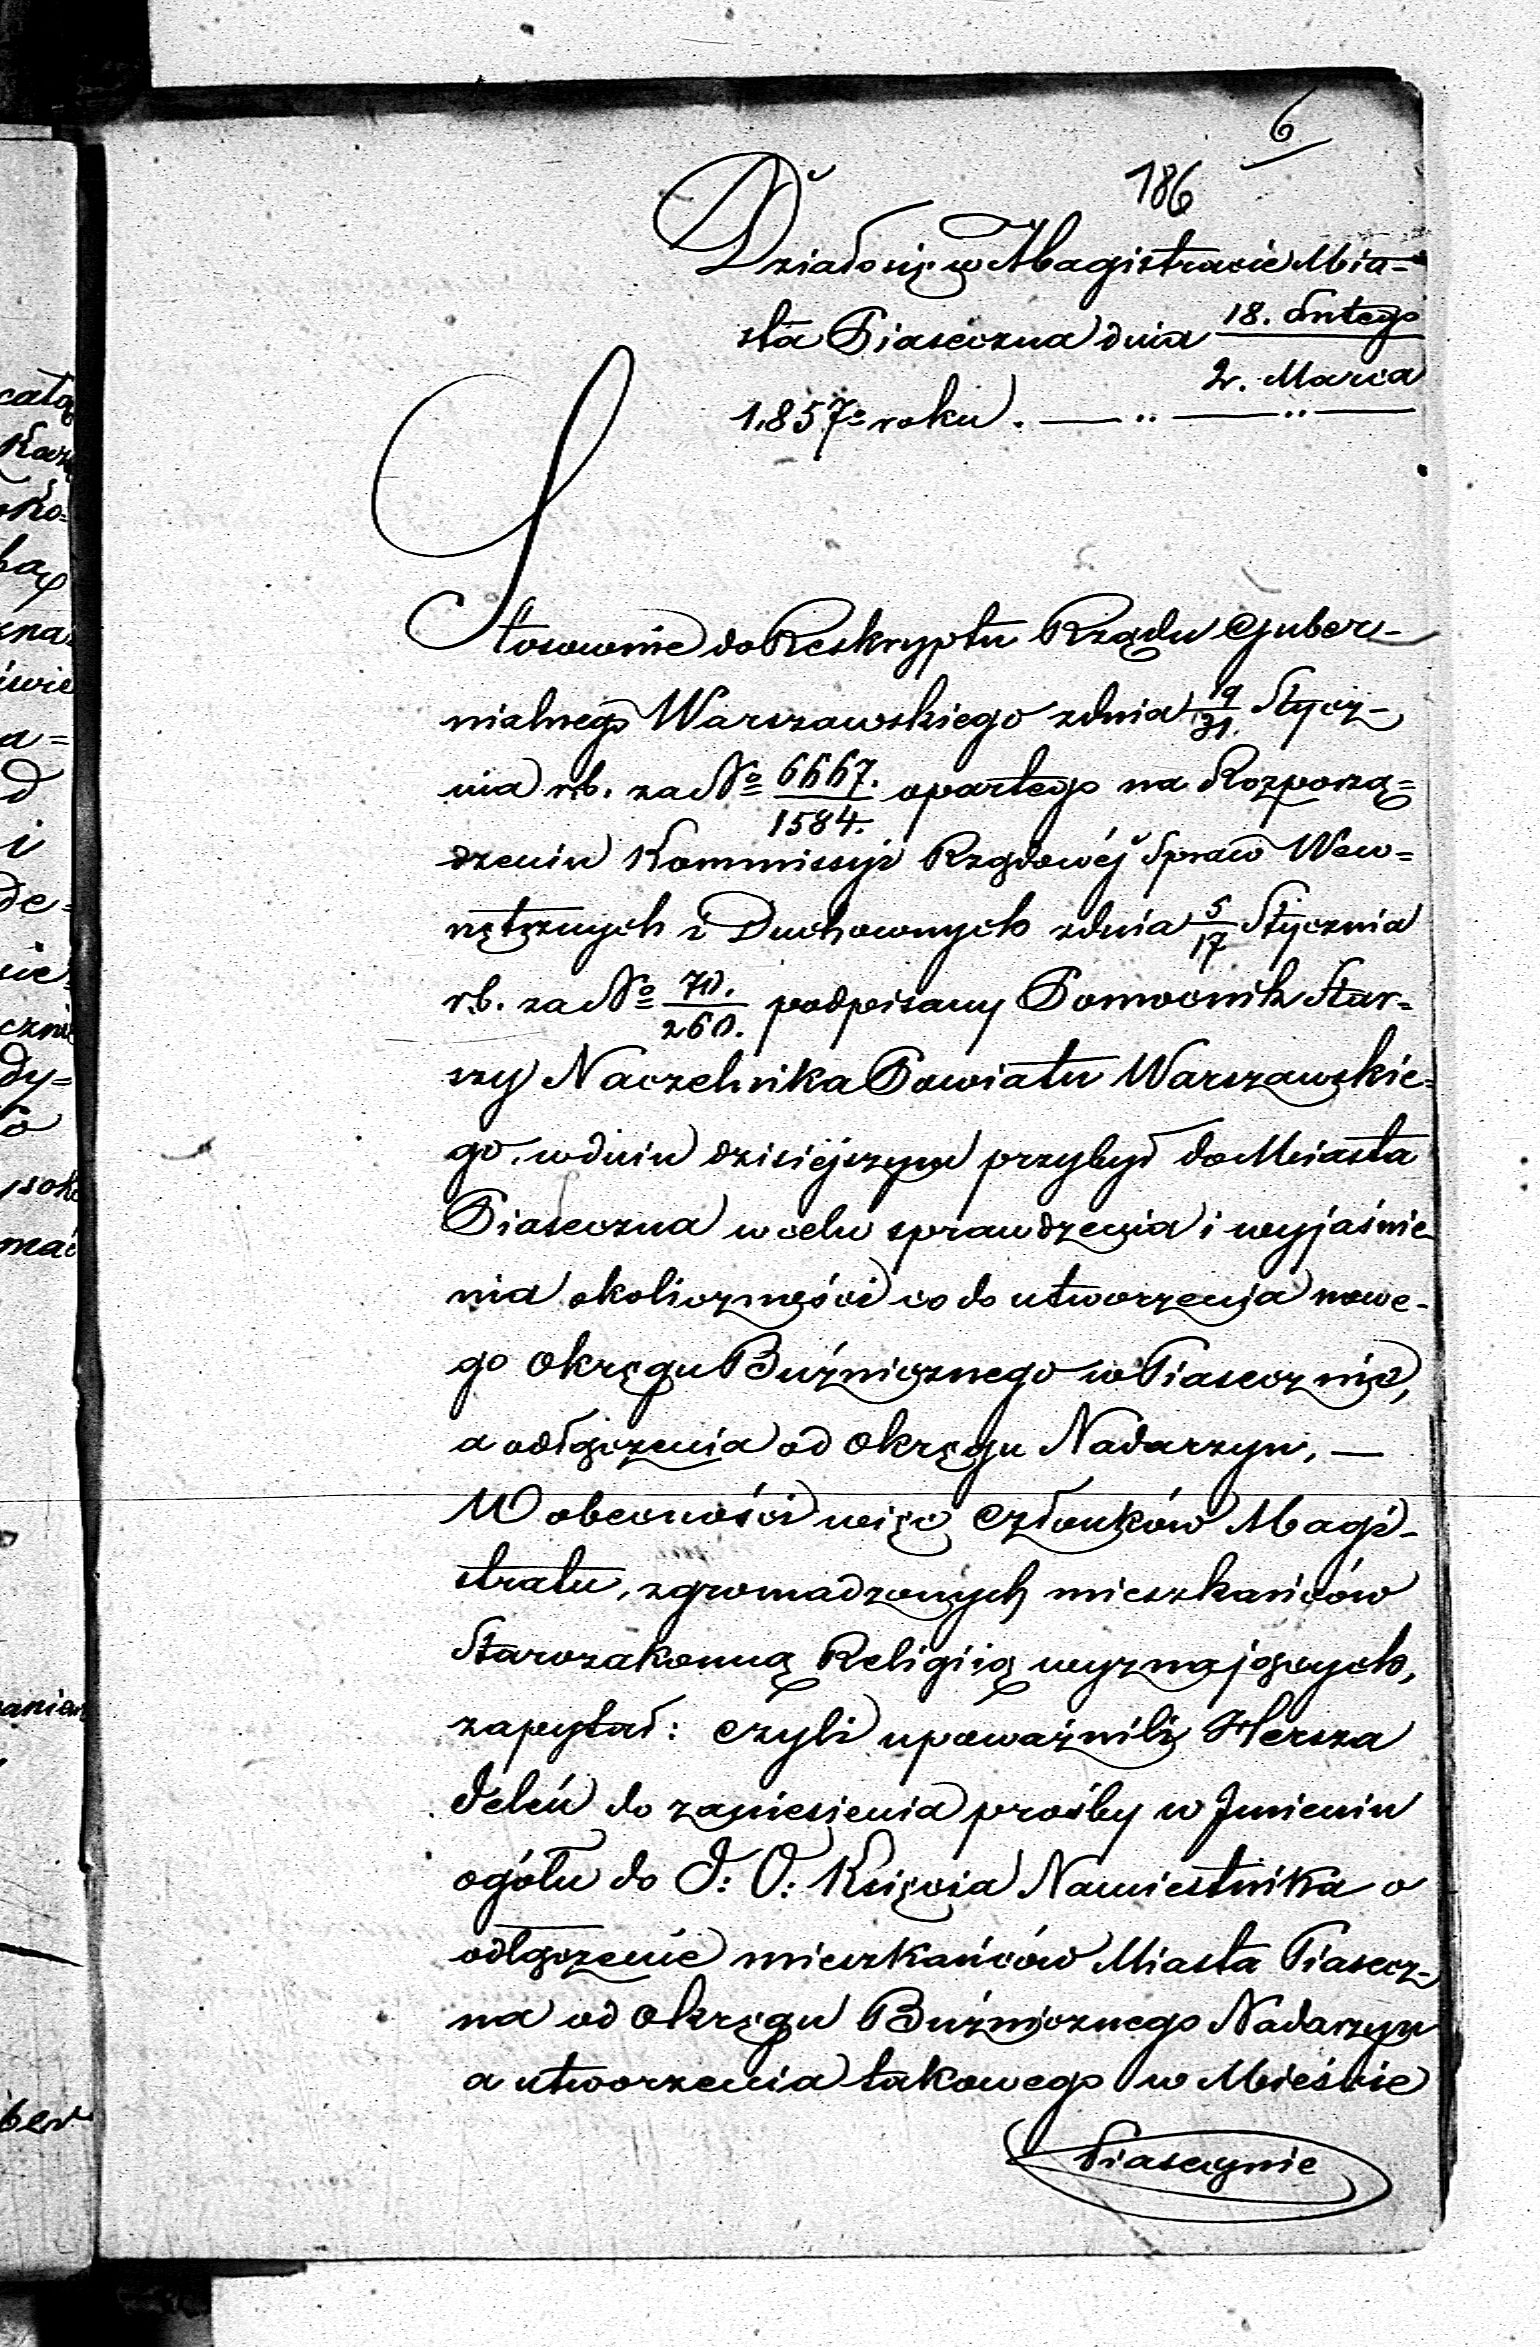 6
186
Działo się w Magistracie Mia-
sta Piaseczna dnia 18. Lutego
2. Marca
1857º roku. — .. — .. —
Stosownie do Reskryptu Rządu Guber-
nialnego Warszawskiego z dnia 19/31. Stycz-
nia r.b. za Nº 6667./1584. opartego na Rozporzą=
dzeniu Kommissyi Rządowéj Spraw Wew=
nętrznych i Duchownych z dnia 5/17 Stycznia
r.b. za Nº 70./260. podpisany Pomocnik Star-
szy Naczelnika Powiatu Warszawskie=
go, w dniu dzisiejszym przybył do Miasta
Piaseczna w celu sprawdzenia i wyjaśnie-
nia okoliczności co do utworzenia nowe-
go Okręgu Bużnicznego w Piasecznie,
a odłączenia od Okręgu Nadarzyn. —
W obecności więc Członków Magi-
stratu, zgromadzonych mieszkańców
Starozakonną Religiią wyznających,
zapytał: czyli upoważnili Hersza
do zaniesienia prośby w Jmieniu
ogółu do J: O: Księcia Namiestnika o
odłączenie mieszkańców Miasta Piasecz-
na od Okręgu Bużnicznego Nadarzyn
a utworzenia takowego w Mieście
Piasecznie
całą
Ko=
a=
d
i
de=
dy=
ber